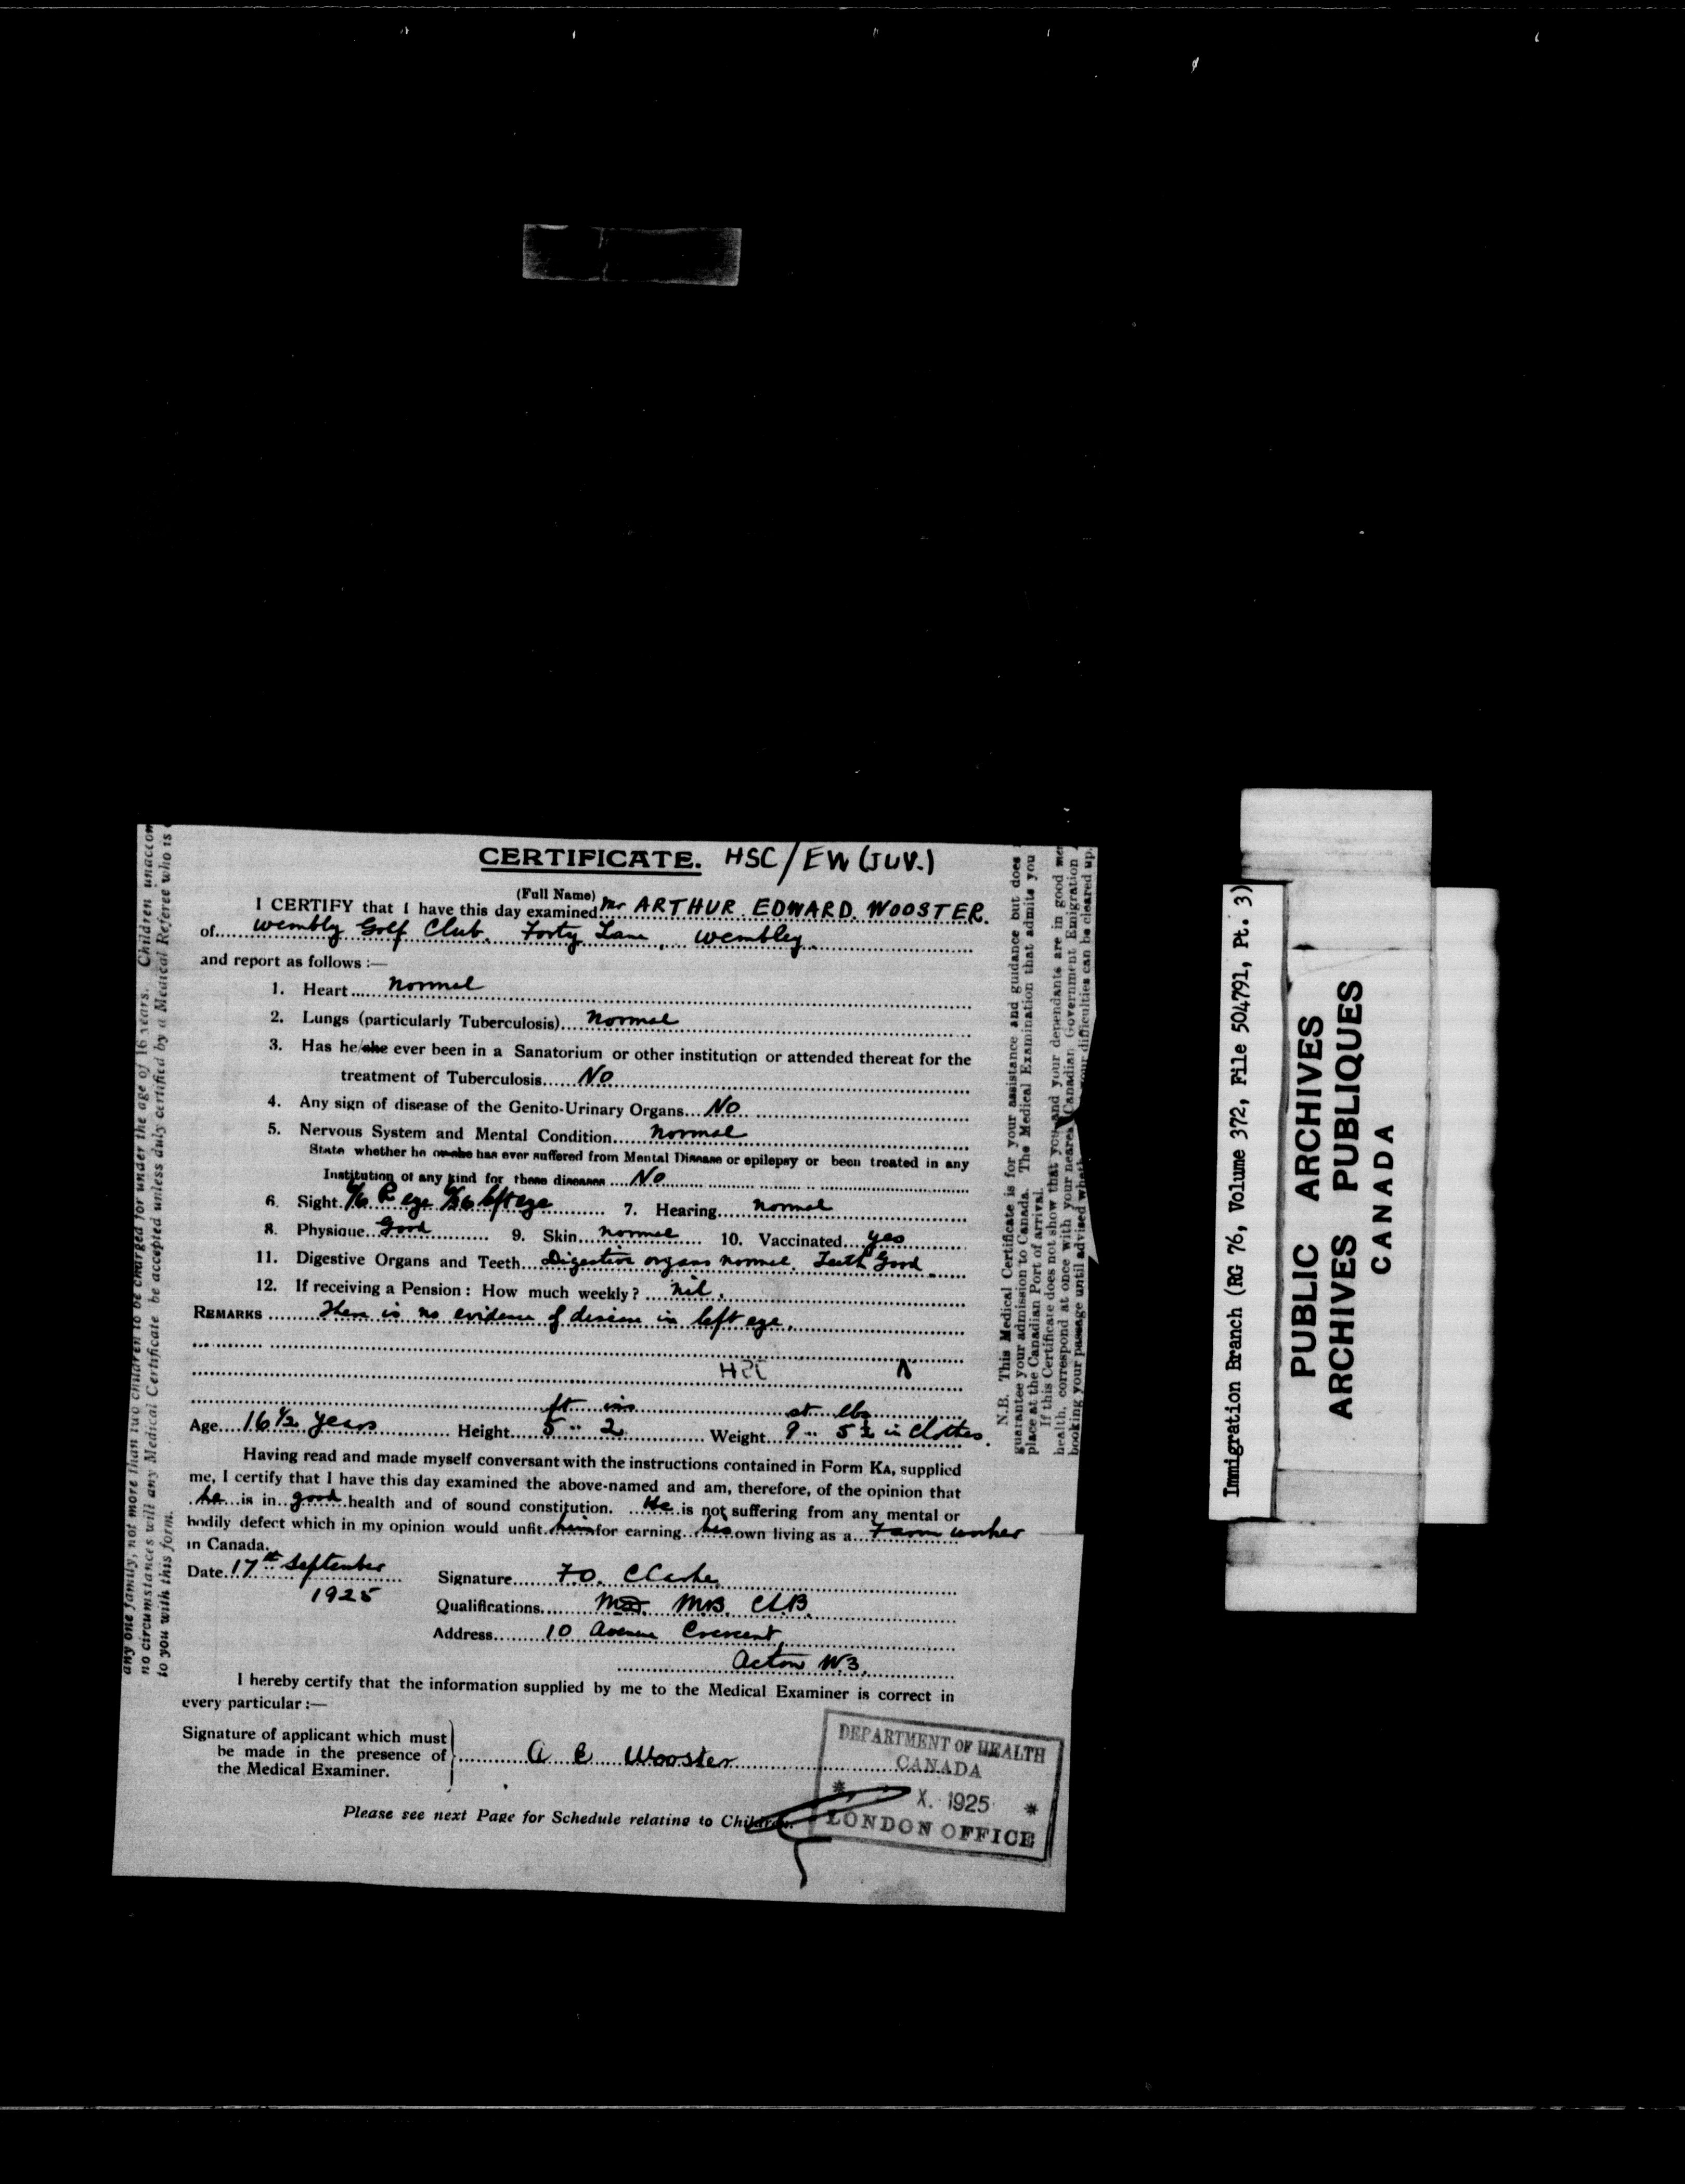 CERTIFICATE. HSC/EW (JUV.)
(Full Name)
I CERTIFY that I have this day examined Mr ARTHUR EDWARD WOOSTER.
of Wembly Golf Club. Forty Lane, Wembley.
and report as follows :—
1. Heart normal
2. Lungs (particularly Tuberculosis) normal
3. Has he/she ever been in a Sanatorium or other institution or attended thereat for the
treatment of Tuberculosis No
4. Any sign of disease of the Genito-Urinary Organs No
5. Nervous System and Mental Condition normal
State whether he or she has ever suffered from Mental Disease or epilepsy or been treated in any
Institution of any kind for these diseases No
6. Sight 6/6 R eye 6/36 left eye 7. Hearing normal
8. Physique Good 9. Skin normal 10. Vaccinated yes
11. Digestive Organs and Teeth Digestive organs normal. Teeth Good
12. If receiving a Pension : How much weekly ? nil.
REMARKS There is no evidence of disease in left eye.
ft ins st lbs
Age 16½ years Height 5 " 2 Weight 9 " 5½ in clothes.
Having read and made myself conversant with the instructions contained in Form KA, supplied
me, I certify that I have this day examined the above-named and am, therefore, of the opinion that
he is in good health and of sound constitution. He is not suffering from any mental or
bodily defect which in my opinion would unfit him for earning his own living as a Farm worker
in Canada.
Date 17th September
1925
Signature F.O. Clarke
Qualifications M.B. Ch.B.
Address 10 Avenue Crescent,
Acton W3.
I hereby certify that the information supplied by me to the Medical Examiner is correct in
every particular :—
Signature of applicant which must
be made in the presence of
the Medical Examiner.
A E Wooster
Please see next Page for Schedule relating to Children.
DEPARTMENT OF HEALTH
CANADA
X. 1925
LONDON OFFICE
any one family, not more than two children to be charged for under the age of 16 years. Children unaccom
no circumstances will any Medical Certificate be accepted unless duly certified by a Medical Referee who is
to you with this form.
N.B. This Medical Certificate is for your assistance and guidance but does
guarantee your admission to Canada. The Medical Examination that admits you
place at the Canadian Port of arrival.
If this Certificate does not show that you and your dependants are in good men
health, correspond at once with your neares Canadian Government Emigration
booking your passage until advised wheth your difficulties can be cleared up.
Immigration Branch (RG 76, Volume 372, File 504791, Pt. 3)
PUBLIC ARCHIVES
ARCHIVES PUBLIQUES
CANADA